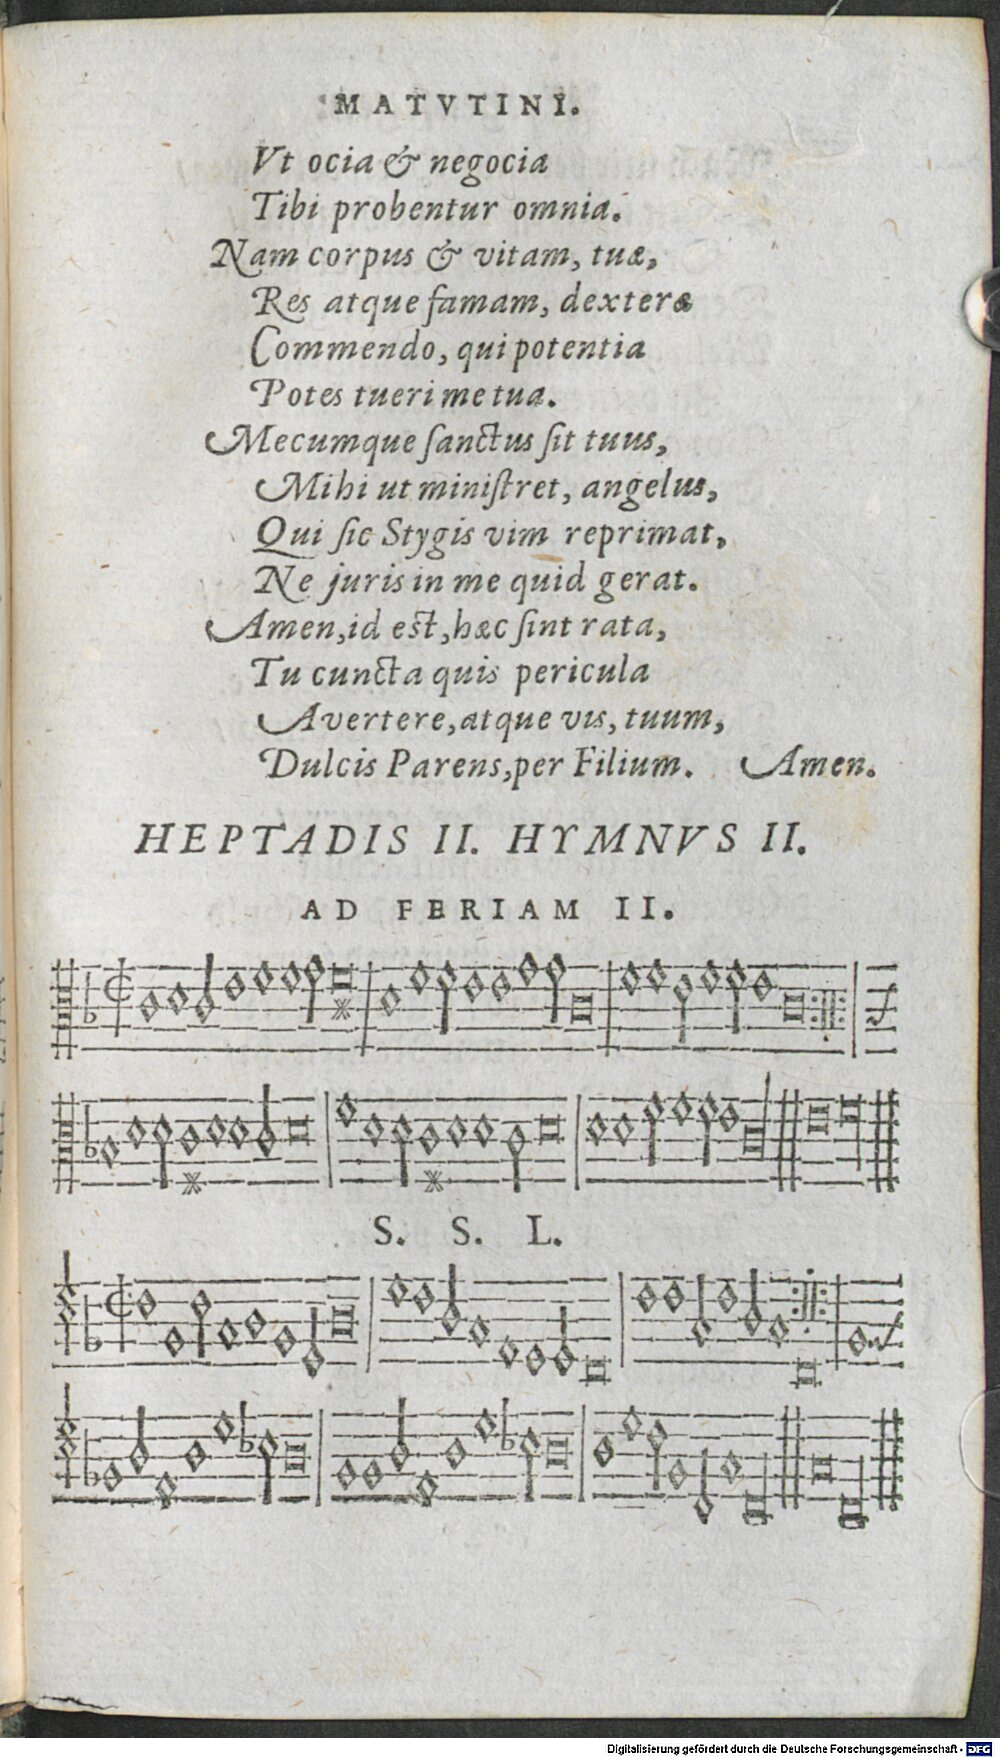 MATVTINI.
Vt ocia & negocia
Tibi probentur omnia.
Nam corpus & vitam, tuæ,
Res atque famam, dexteræ
Commendo, qui potentia
Potes tueri me tua.
Mecumque ſanctus ſit tuus,
Mihi ut miniſtret, angelus,
Qui ſic Stygis vim reprimat,
Ne juris in me quid gerat.
Amen, id eſt, hæc ſint rata,
Tu cuncta quis pericula
Avertere, atque vis, tuum,
Dulcis Parens, per Filium. Amen.
HEPTADIS II. HYMNVS II.
AD FERIAM II.
S. S. L.
Digitalisierung gefördert durch die Deutsche Forschungsgemeinschaft - DFG